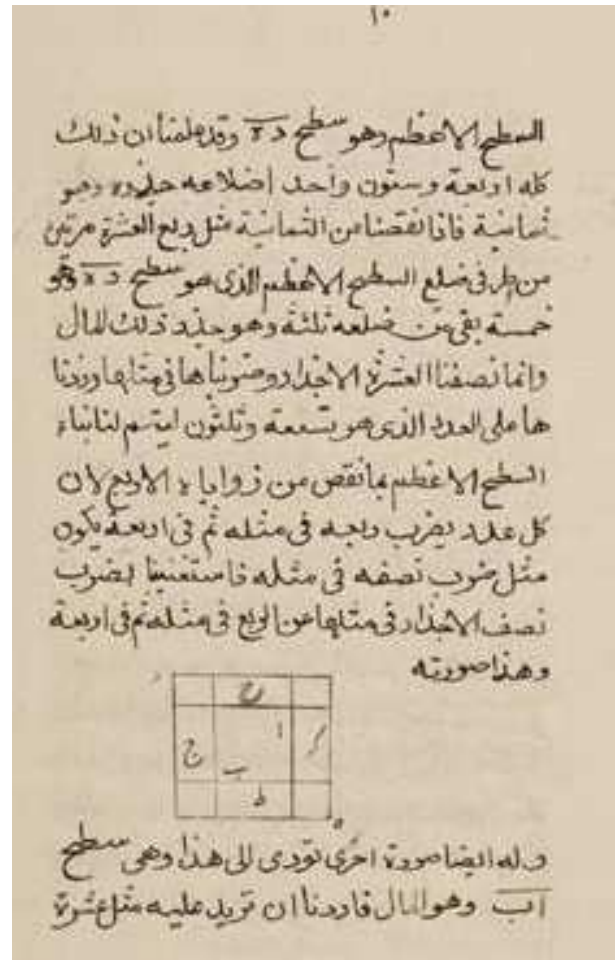 ١٠
السطح الاعظم وهو سطح ده وقد علمنا ان ذلك
كله اربعة وستون واحد اضلاعه جذره وهو
ثمانية فاذا نقصنا من الثمانية مثل ربع العشرة مرتين
من طرفى ضلع السطح الاعظم الذى هو سطح ده وهو
خمسة بقى من ضلعه ثلثة وهو جذر ذلك المال
وانما نصفنا العشرة الاجذار وضربناها فى مثلها وزدنا
ها على العدد الذى هو تسعة وثلثون ليتم لنا بناء
السطح الاعظم بما نقص من زواياه الاربع لان
كل عدد يضرب ربعه فى مثله ثم فى اربعة يكون
مثل ضرب نصفه فى مثله فاستغنينا بضرب
نصف الاجذار فى مثلها عن الربع فى مثله ثم فى اربعة
وهذا صورته
د
ح
ا
ج
ب
ط
ه
وله ايضا صورة اخرى تودى الى هذا وهى سطح
اب وهو المال فاردنا ان نزيد عليه مثل عشرة